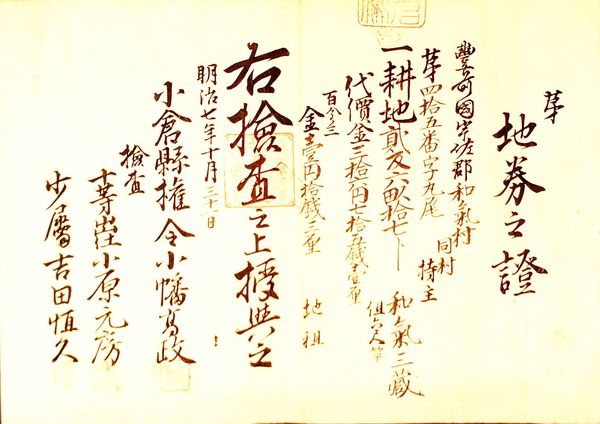 第
地券之證
豊前國宇佐郡和氣村
第四拾五番字九尾
同村
持主
一耕地貳反六畝拾七卜
和氣三藏
代價金三拾四円七拾五銭壹厘
組合人等
百分三
金壹円拾銭三厘
地租
右撿査之上授與之
明治七年十月三十一日
小倉縣権令小幡髙政
撿査
十等出仕小原元房
少属吉田恒久